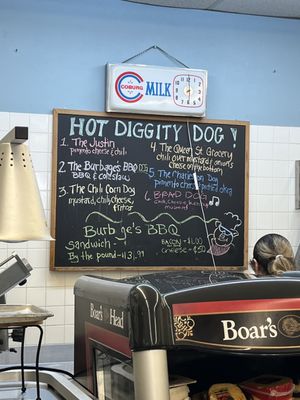 COBURG
MILK
HOT DIGGITY DOG!
1. The Justin
pimento cheese & chili
2 The Burbages BBQ DOG
BBQ & coleslaw
3. The Chili Corn Dog
mustard, chili/cheese,
fritos
4 The Queen St. Grocery
chili over mustard & onions
cheese on the top
5. The Charleston Dog
pimento cheese & relish
6. BRAD DOG
chili, cheese
mustard
Burbage's BBQ
Sandwich -
By the pound -
BACON
CHEESE
Boar's Head
Boar's